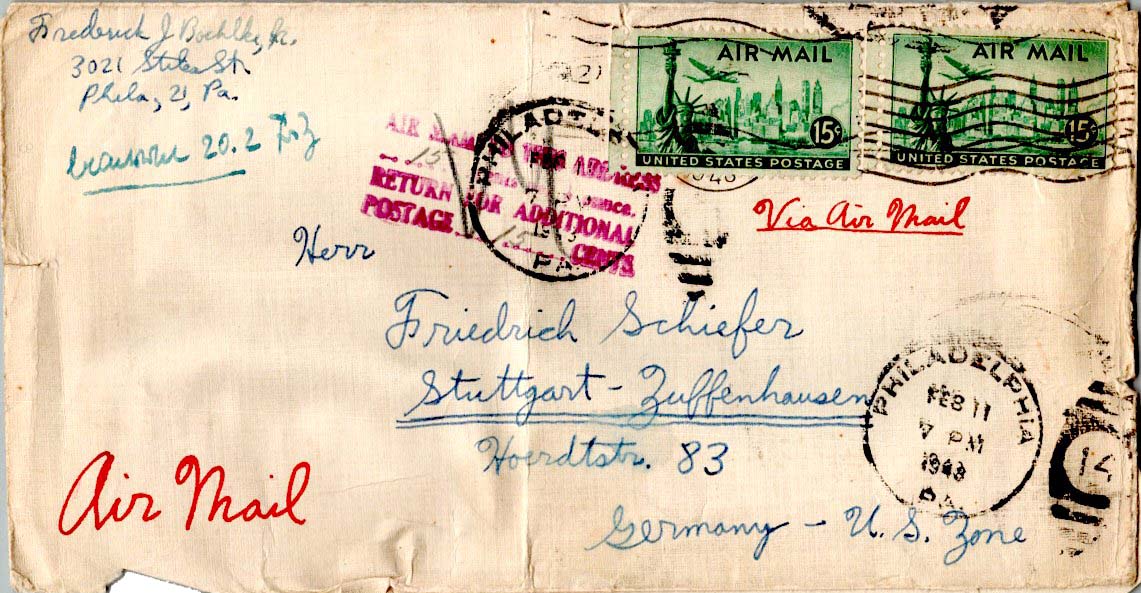 Frederick J. Boehlke, Jr.
3021 Stiles St.
Phila, 21, Pa.
20.2
AIR MAIL
15¢
UNITED STATES POSTAGE
AIR MAIL
15¢
UNITED STATES POSTAGE
AIR THIS ADDRESS
15
RETURN FOR ADDITIONAL
POSTAGE 15 CENTS
PHILADELPHIA
FEB
7 PM
PA.
Via Air Mail
Herr
Friedrich Schiefer
Stuttgart - Zuffenhausen
Hoerdtstr. 83
Germany - U. S. Zone
Air Mail
PHILADELPHIA
FEB 11
7 PM
1948
PA.
14